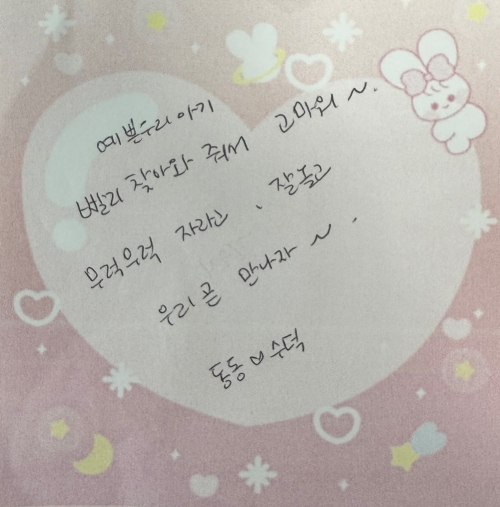 예쁜우리 아기
빨리 찾아와 줘서 고마워 ~.
무럭무럭 자라고、잘놀고
우리 곧 만나자 ~ .
동동♡수덕